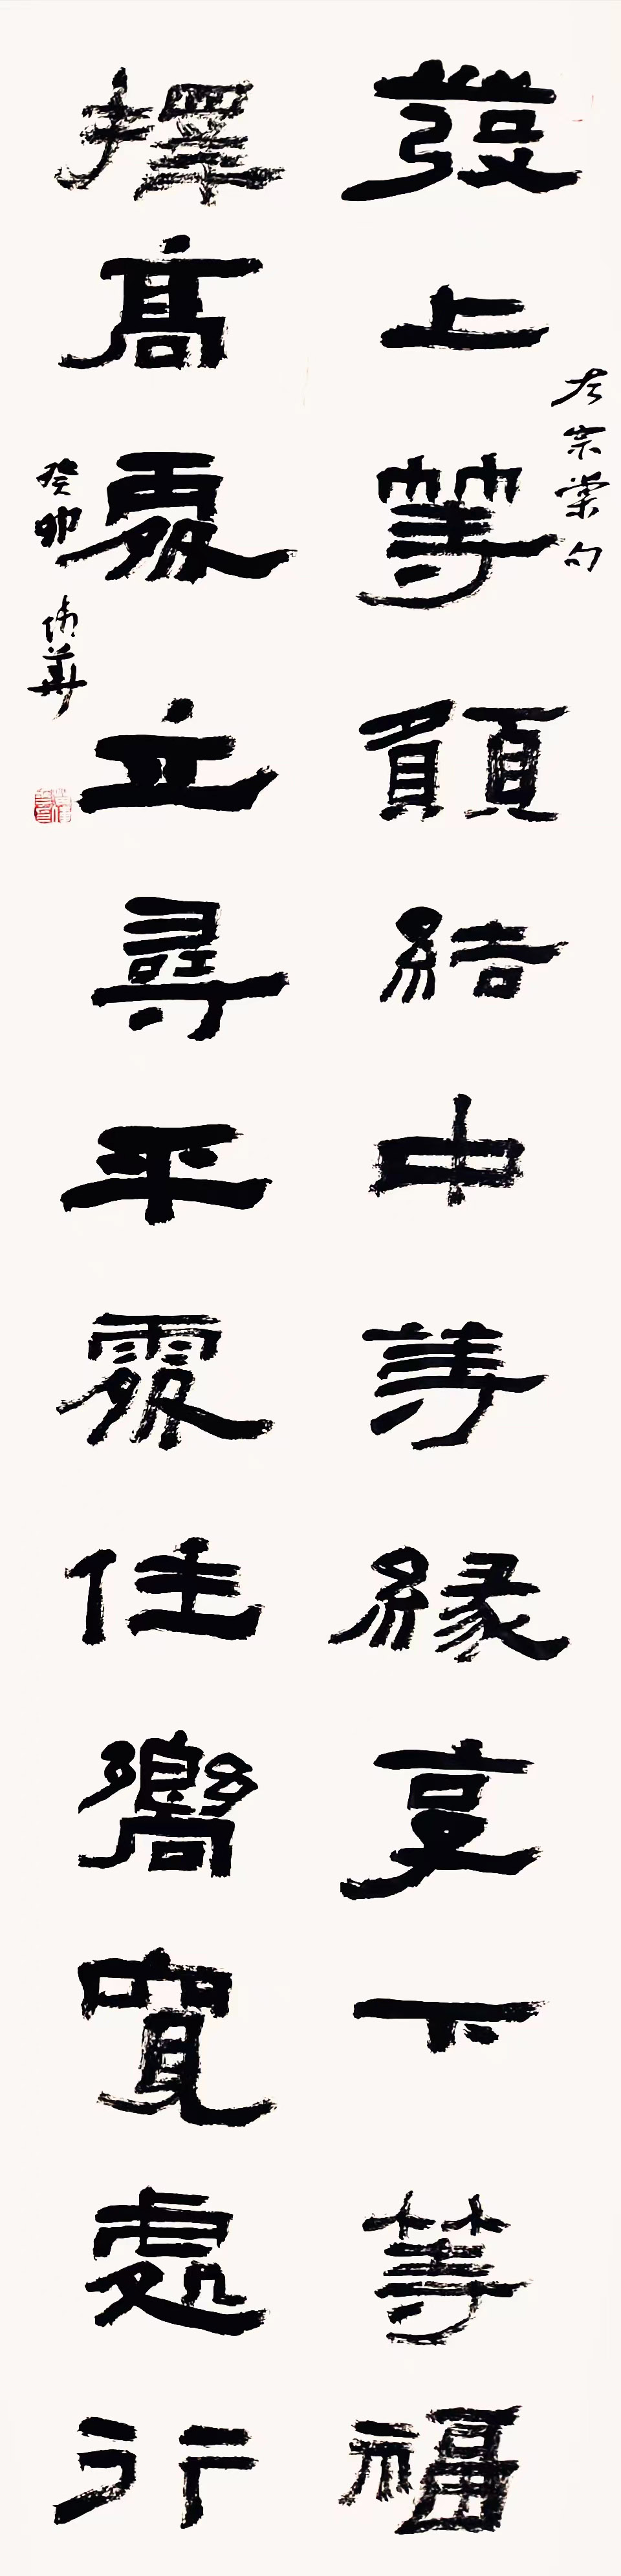 發上等願結中等緣享下等福
左宗棠句
擇高處立尋平處住嚮寬處行
癸卯 偉華